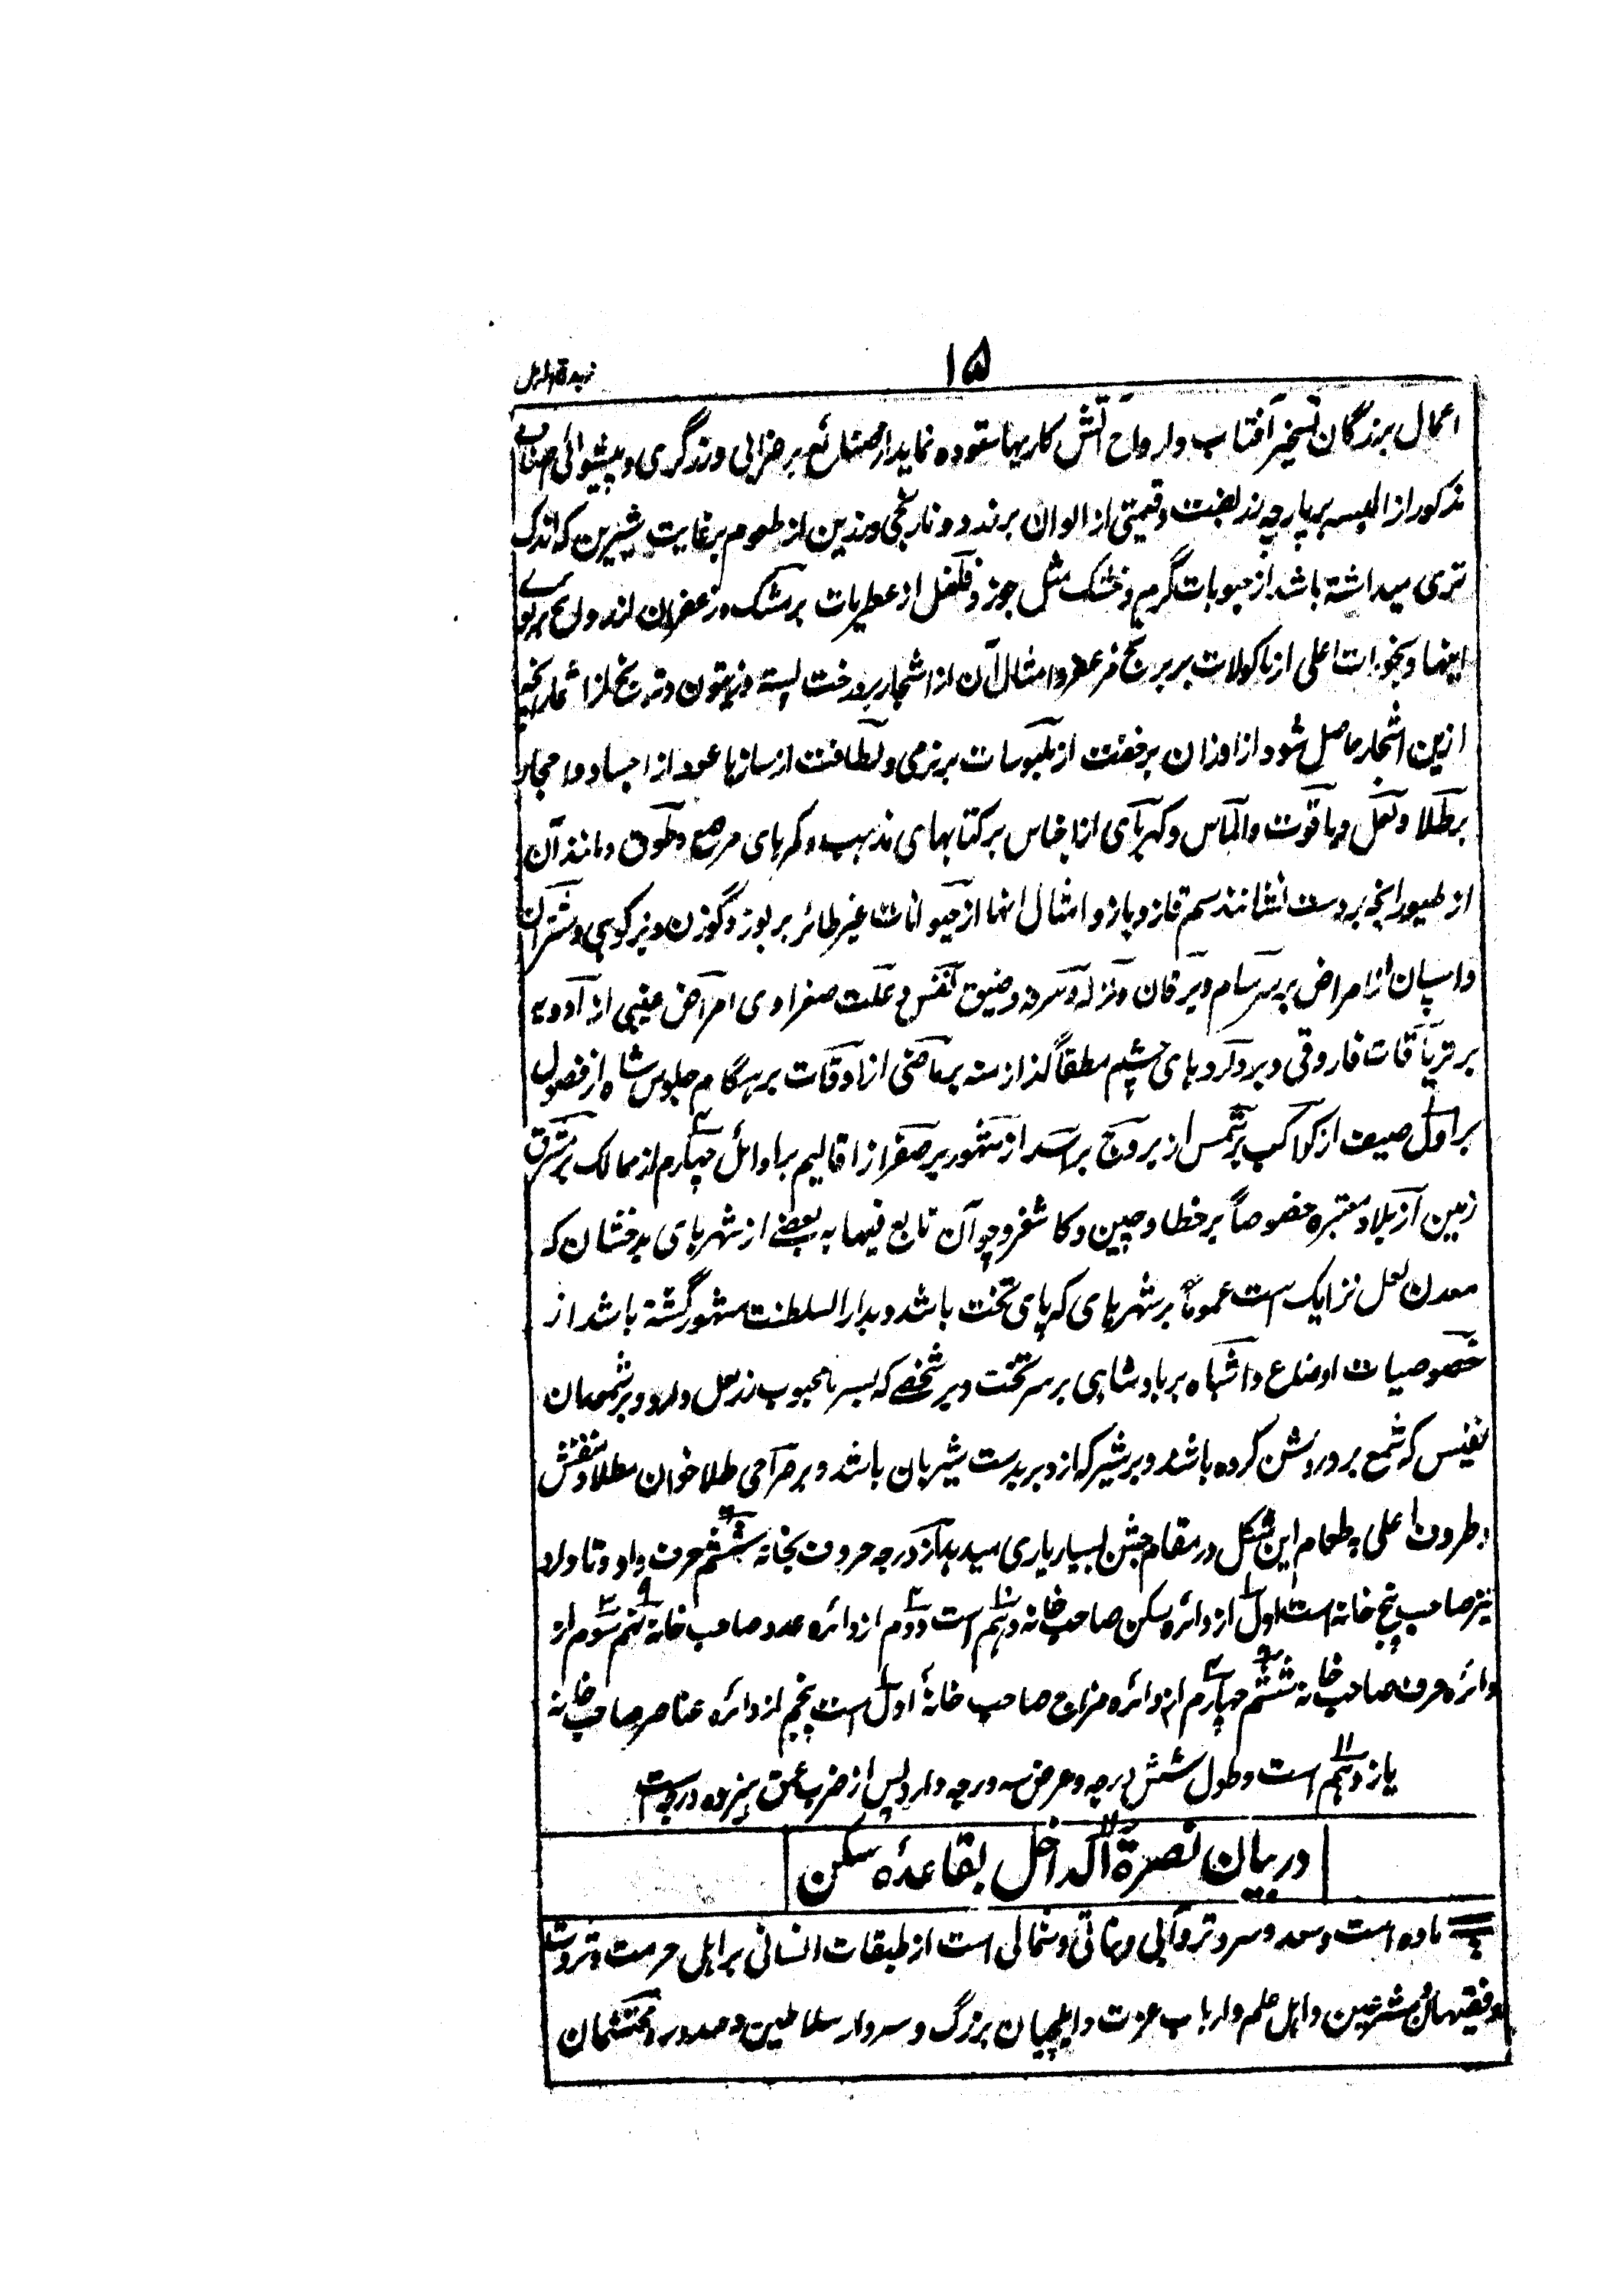 ۱۵
زبدة الرمل
اعمال بزرگان تسخیر آفتاب وارواح آتش کاریها ستوده نماید از صنائع بر ضرابی وزرگری و پیشوائی اصناف
مذکور از البسه بر پارچه زربفت وقیمتی از الوان بر زرد و نارنجی وزرین از طعوم بر غایت شیرین که اندک
تری میداشته باشد از حبوبات گرم وخشک مثل جوز و فلفل از عطریات بر مشک وزعفران
اینها و بخورات اعلی از ماکولات بر برنج مزعفر وامثال آن از اشجار بر درخت پسته وزیتون وترنج از اثمار آنچه
ازین اشجار حاصل شود از اوزان بر خفت از ملبوسات بر نرمی ولطافت از سازها عود از اجساد واحجار
بر طلا ولعل ویاقوت والماس وکهربای از اجناس بر کتابهای مذهب وکمرهای مرصع وطوق ومانند آن
از طیور آنچه بر دست نشانند سم قاز و باز و امثال اینها از حیوانات غیر طائر بر یوز وگوزن وبز کوهی وشتران
واسپان از امراض بر سرسام ویرقان ونزله وسرفه وضیق نفس و علت صفراوی امراض عینی از ادویه
بر تریاقات فاروقی وبر داروهای چشم مطلقاً از ازمنه بر ماضی از اوقات بر هنگام جلوس شاه از فصول
بر اول صیف از کواکب بر شمس از بروج بر اسد از شهور بر صفر از اقالیم بر اوائل چهارم از ممالک بر مشرق
زمین از بلاد معتبره خصوصاً بر خطا وچین وکاشغر وچو آن تابع فیها به بعضے از شهرهای بدخشان که
معدن لعل نزدیک است عموماً بر شهرهای که پای تخت باشد وبدار السلطنت مشهور گشته باشد از
خصوصیات اوضاع واشباه بر بادشاهی بر سر تخت وبر شخصے که بسر محبوب زر لعل دارد وبر شمعدان
نفیس که شمع بر و روشن کرده باشد وبر شیر که از دبر بدست شیربان باشد وبر صراحی طلا خوان مطلا ومنقش
وظروف اعلی به طعام این شکل در مقام جشن بسیار یاری میدهد از درجه حروف بخانه ششم حرف واو وتا دارد
نیز صاحب پنج خانه است اول از دائره سکن صاحب خانه دهم است دوم از دائره عدد صاحب خانه نهم سوم از
دائره حرف صاحب خانه ششم چهارم از دائره مزاج صاحب خانهٔ اول است پنجم از دائره عناصر صاحب خانه
یازدهم است وطول شش درجه وعرض سه درجه دارد پس از ضرب عمق هیزده درجه است
در بیان نصرة الداخل بقاعدۀ سکن
ماده است وسعد وسرد وتر وآبی ونباتی وشمالی است از طبقات انسانی بر اهل حرمت وثروت
وفقیهان متشرعین واهل علم وارباب عزت وایلچیان بزرگ و سردار سلاطین وصدور ومحتشمان